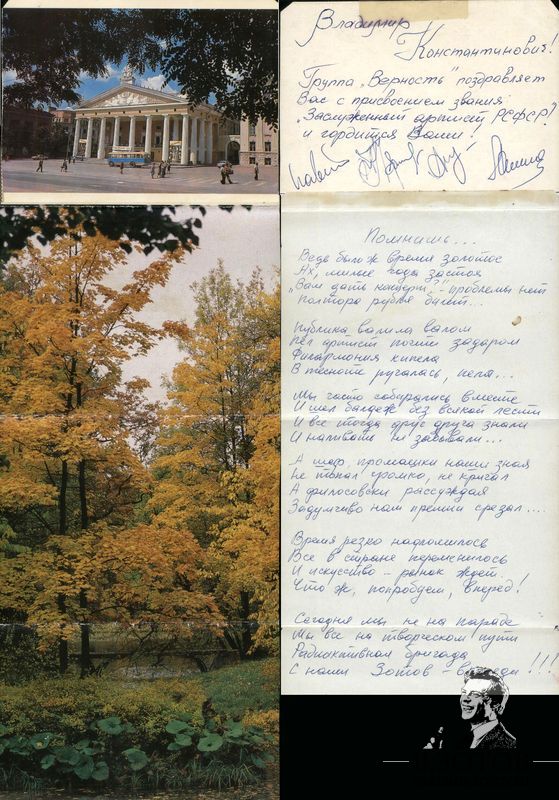 Владимир
Константинович!
Группа „Верность" поздравляет
Вас с присвоением звания
„Заслуженный артист РСФСР"
и гордится Вами!
Помнишь...
Ведь было ж время золотое
Ах, милые годы застоя
„Вам дать концерт," - проблемы нет
Полтора рубля билет...
Публика валила валом
Пел артист почти задаром
Филармония кипела
В тесноте ругалась, пела...
Мы часто собирались вместе
И шёл балдёж без всякой лести
И все тогда друг друга знали
И наливать не забывали...
А шеф, промашки наши зная
Не топал громко, не кричал
А философски рассуждая
Задумчиво нам премии срезал....
Время резко надломилось
Все в стране переменилось
И искусство - рынок ждет.
Что ж, попробуем, вперед!
Сегодня мы не на параде
Мы все на творческом пути
Радиоактивная бригада
С нами Зотов - впереди!!!